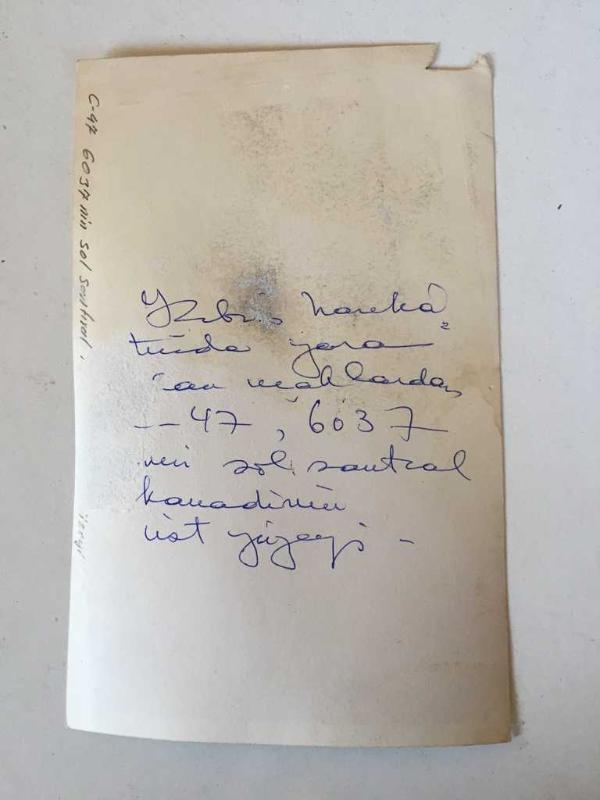 Kıbrıs harekâ=
tında yara
uçaklardan
-47, 6037
nin sol santral
kanadının
üst yüzeyi -
C-47 6037 nin sol santral.
üzeyi